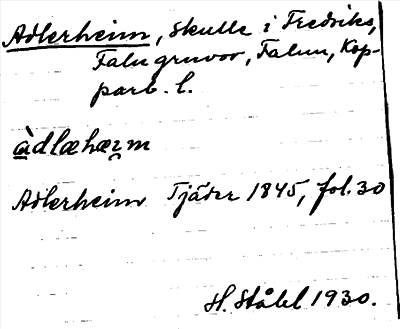 Adlerheim, skulle i Fredriks,
Falu gruvor, Falun, Kop-
parb. l.
àdlæhæi̯m
Adlerheim Tjäder 1845, fol. 30
H. Ståhl 1930.